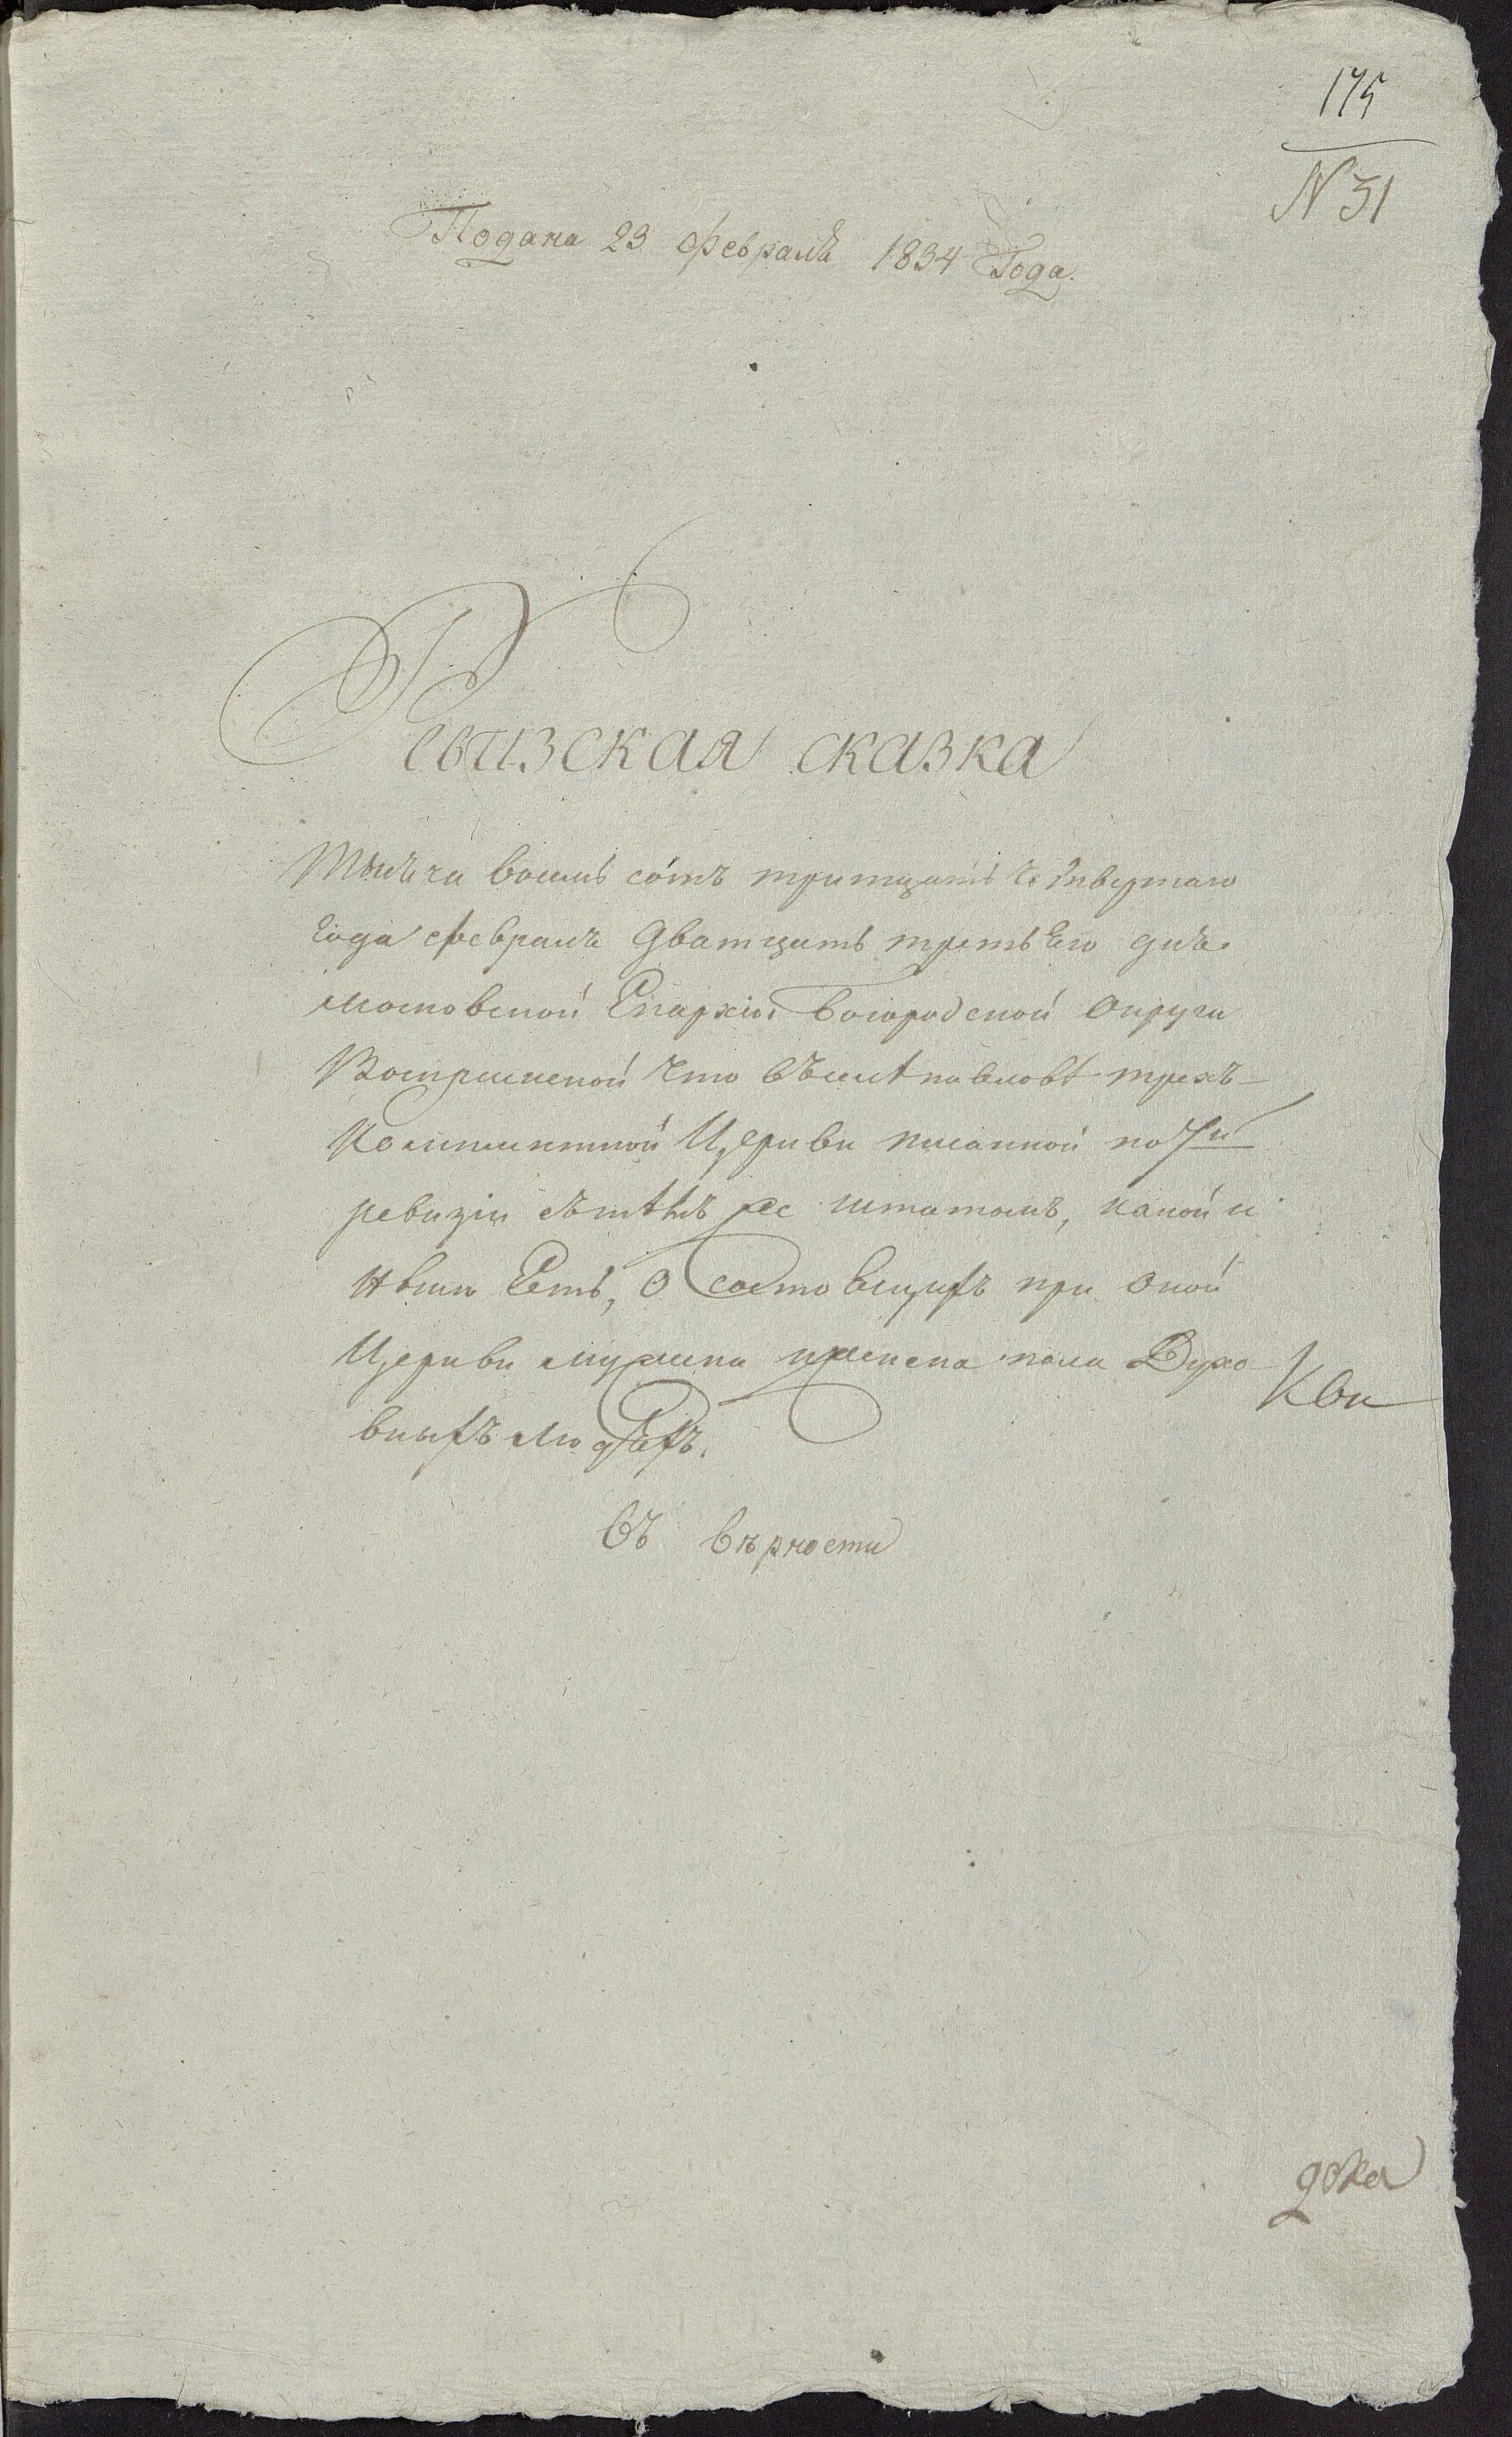 175
N 31
Подана 23 февраля 1834 Года.
Ревизская сказка
Тысяча восемь сотъ тритцать четвертаго
года февраля Дватцать третьего дня.
Московской Епархіи, Богородской Округи
Воскресенской что въ селѣ Павловѣ трехъ
Комплектной Церкви писанной по 7й
ревизіи съ тѣмъ же штатомъ, какой и
нынѣ Есть, О состоящихъ при оной
Церкви мужеска и женска пола Духо
вныхъ людѣхъ.
Въ вѣрности